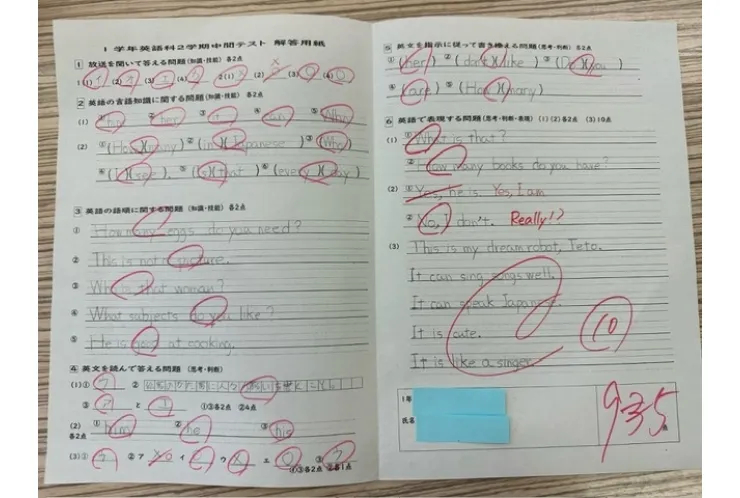 1学年英語科2学期中間テスト 解答用紙
1 放送を聞いて答える問題(知識・技能) 各2点
(1) (1) イ (2) (3) (4) 2 (1) × (2) (3) ○ (4) ○
2 英語の言語知識に関する問題(知識・技能) 各2点
(1) ① him ② her ③ it ④ can ⑤ Who
(2) ① (How)(many) ② (in)(Japanese) ③ (Why)
④ (I)(see). ⑤ (Is)(that ⑥ (every)(day)
3 英語の語順に関する問題(知識・技能) 各2点
① How many eggs do you need?
② This is not a picture.
③ Who is that woman?
④ What subjects do you like?
⑤ He is good at cooking.
4 英文を読んで答える問題 (思考・判断)
(1) ① ウ ②
③ ア と エ ①③各2点 ②4点
(2) ① him ② he ③ his
各2点
(3) ① ② ア イ ウ × エ ○ ③ ウ
①③各2点 ②各1点
5 英文を指示に従って書き換える問題(思考・判断) 各2点
① (her) ② (don't)(like) ③ (Do)(you)
④ (are) ⑤ (How)(many)
6 英語で表現する問題(思考・判断・表現) (1)(2)各2点 (3)10点
(1) ① What is that?
② How many books do you have?
(2) ① Yes, he is. Yes, I am
② No, I don't. Really!?
(3) This is my dream robot, Teto.
It can sing songs well.
It can speak Japanese.
It is cute.
It is like a singer.
10
1年
氏名
935
点